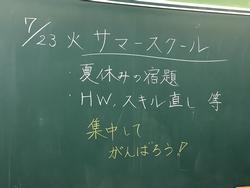 7/23 火 サマースクール
・夏休みの宿題
・HW, スキル直し 等
集中して
がんばろう!